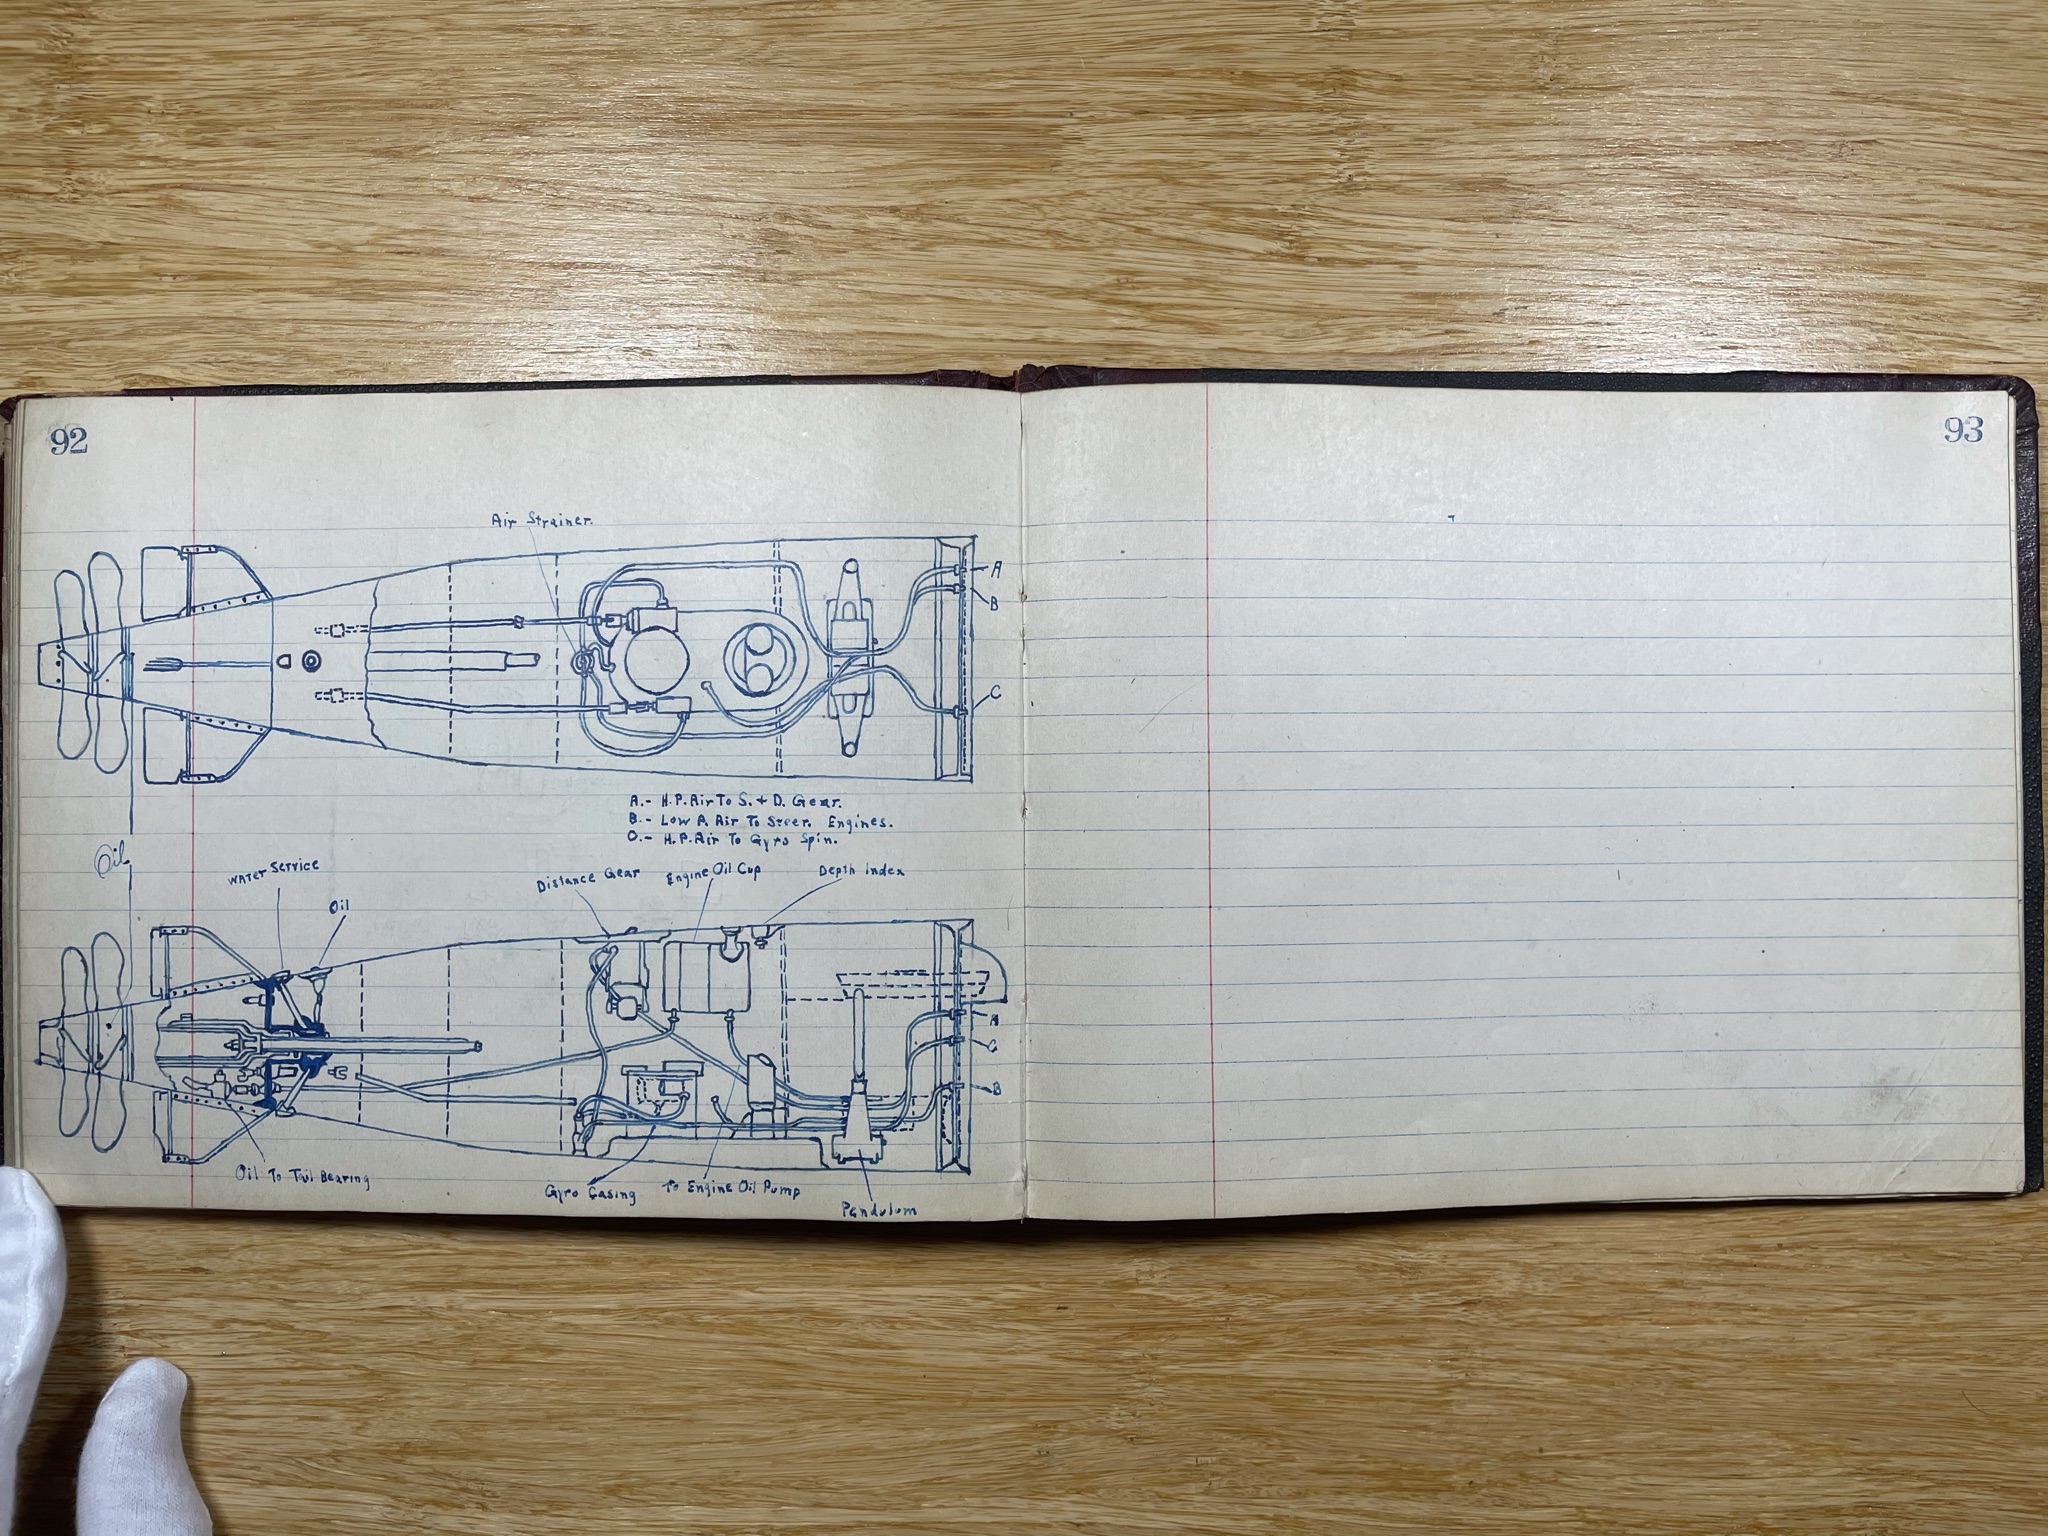 92
93
Air Strainer.
A
B
C
A.- H.P. Air To S. + D. Gear.
B.- Low P. Air To Steer. Engines.
C.- H.P. Air To Gyro Spin.
Oil
Water Service
Oil
Distance Gear
Engine Oil Cup
Depth Index
A
C
B
Oil To Tail Bearing
Gyro Casing
To Engine Oil Pump
Pendulum